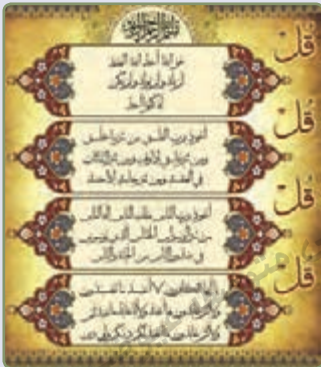 بسم الله الرحمن الرحيم
قُلْ
هو الله أحد الله الصمد
لم يلد ولم يولد ولم يكن
له كفوا أحد
قُلْ
أعوذ برب الفلق من شر ما خلق
ومن شر غاسق إذا وقب ومن شر النفاثات
في العقد ومن شر حاسد إذا حسد
قُلْ
أعوذ برب الناس ملك الناس إله الناس
من شر الوسواس الخناس الذي يوسوس
في صدور الناس من الجنة والناس
قُلْ
يا أيها الكافرون لا أعبد ما تعبدون
ولا أنتم عابدون ما أعبد ولا أنا عابد ما عبدتم
ولا أنتم عابدون ما أعبد لكم دينكم ولي دين